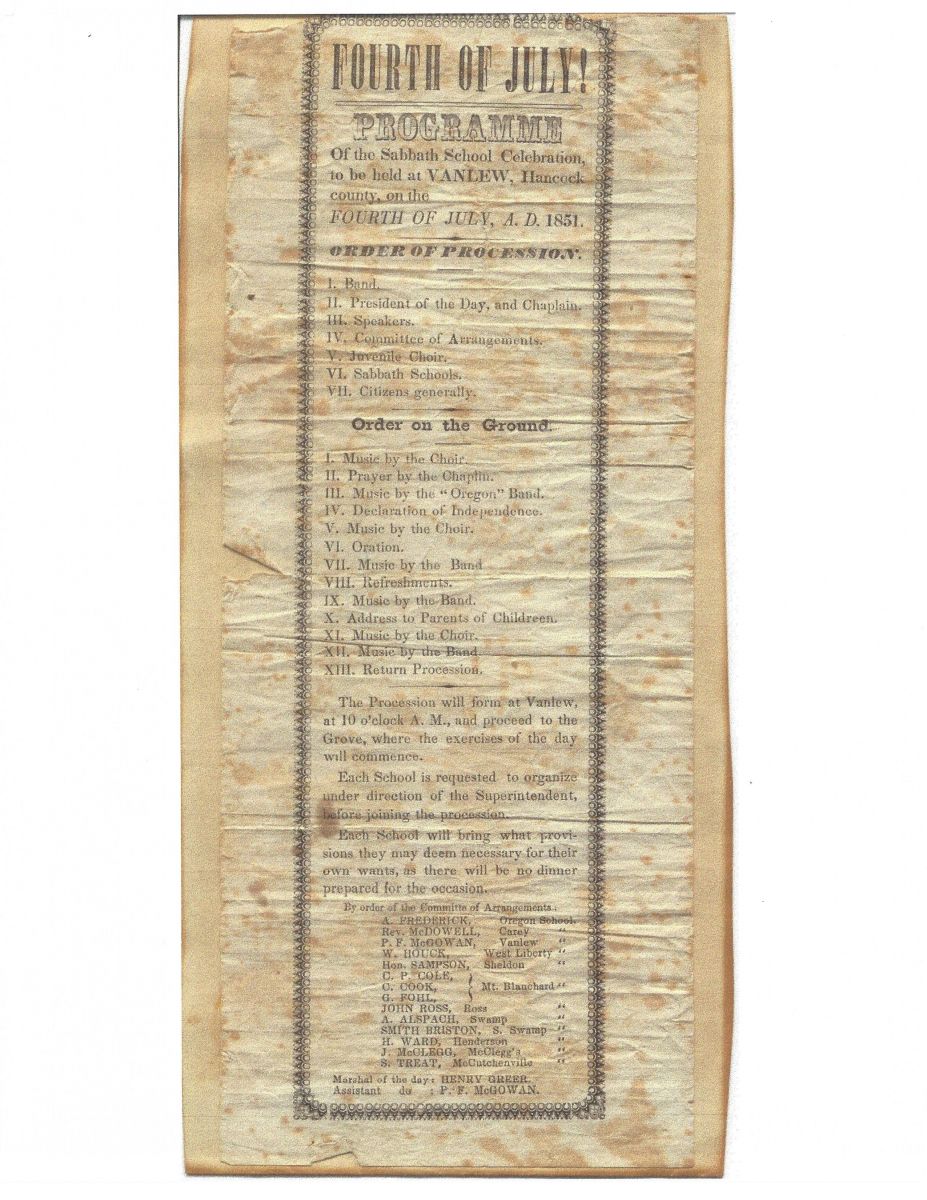 FOURTH OF JULY!
PROGRAMME
Of the Sabbath School Celebration,
to be held at VANLEW, Hancock
county, on the
FOURTH OF JULY, A. D. 1851.
ORDER OF PROCESSION.
I. Band.
II. President of the Day, and Chaplain.
III. Speakers.
IV. Committee of Arrangements.
V. Juvenile Choir.
VI. Sabbath Schools.
VII. Citizens generally.
Order on the Ground.
I. Music by the Choir.
II. Prayer by the Chaplin.
III. Music by the "Oregon" Band.
IV. Declaration of Independence.
V. Music by the Choir.
VI. Oration.
VII. Music by the Band
VIII. Refreshments.
IX. Music by the Band.
X. Address to Parents of Childreen.
XI. Music by the Choir.
XII. Music by the Band
XIII. Return Procession.
The Procession will form at Vanlew,
at 10 o'clock A. M., and proceed to the
Grove, where the exercises of the day
will commence.
Each School is requested to organize
under direction of the Superintendent,
before joining the procession.
Each School will bring what provi-
sions they may deem necessary for their
own wants, as there will be no dinner
prepared for the occasion.
By order of the Committe of Arrangements:
A. FREDERICK, Oregon School.
Rev. McDOWELL, Carey "
P. F. McGOWAN, Vanlew "
W. HOUCK, West Liberty "
Hon. SAMPSON, Sheldon "
C. P. COLE,
C. COOK, } Mt. Blanchard "
G. FOHL,
JOHN ROSS, Ross "
A. ALSPACH, Swamp "
SMITH BRISTON, S. Swamp "
H. WARD, Henderson "
J. McCLEGG, McClegg's "
S. TREAT, McCutchenville "
Marshal of the day: HENRY GREER.
Assistant do : P. F. McGOWAN.